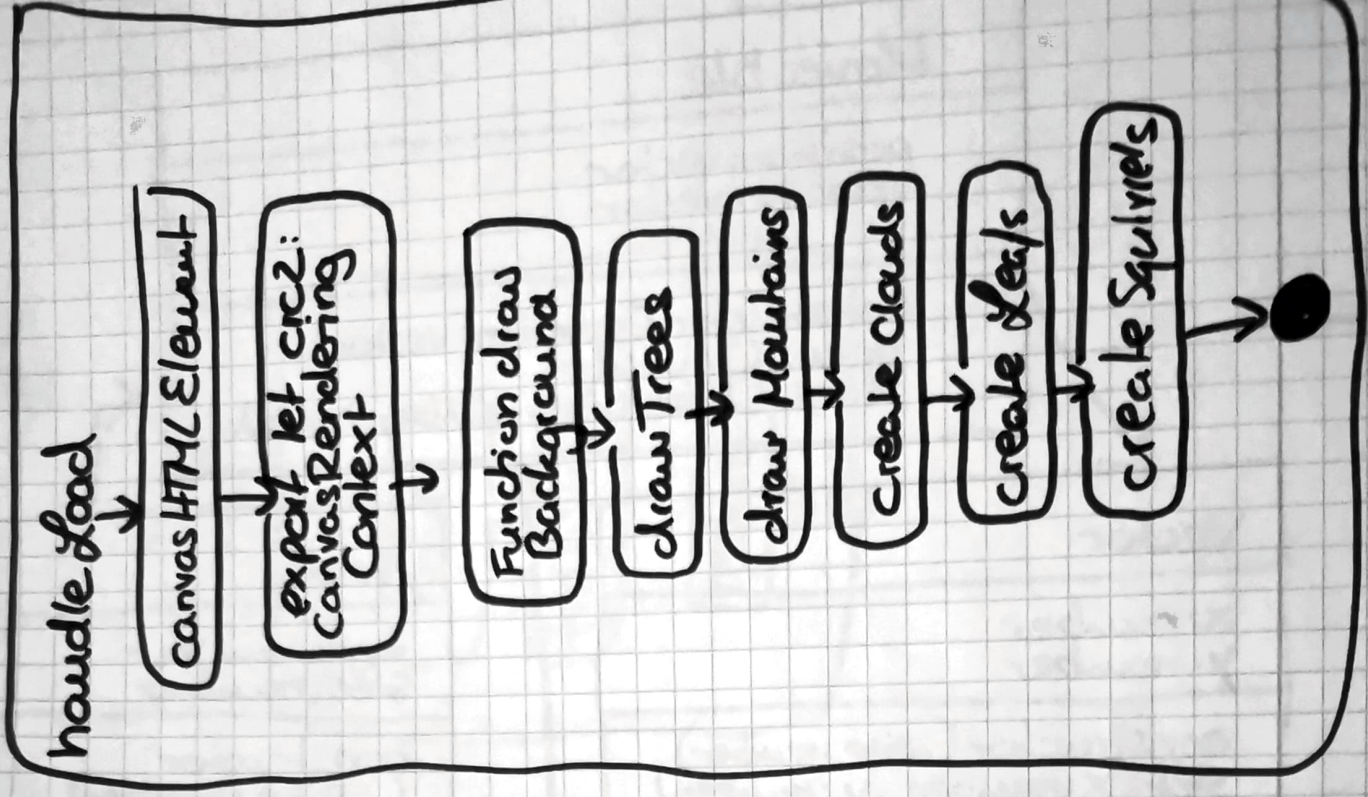 handle Load
canvasHTMLElement
export let crc2:
CanvasRendering
Context
Function draw
Background
draw Trees
draw Mountains
create Clouds
create Leafs
create Squirrels